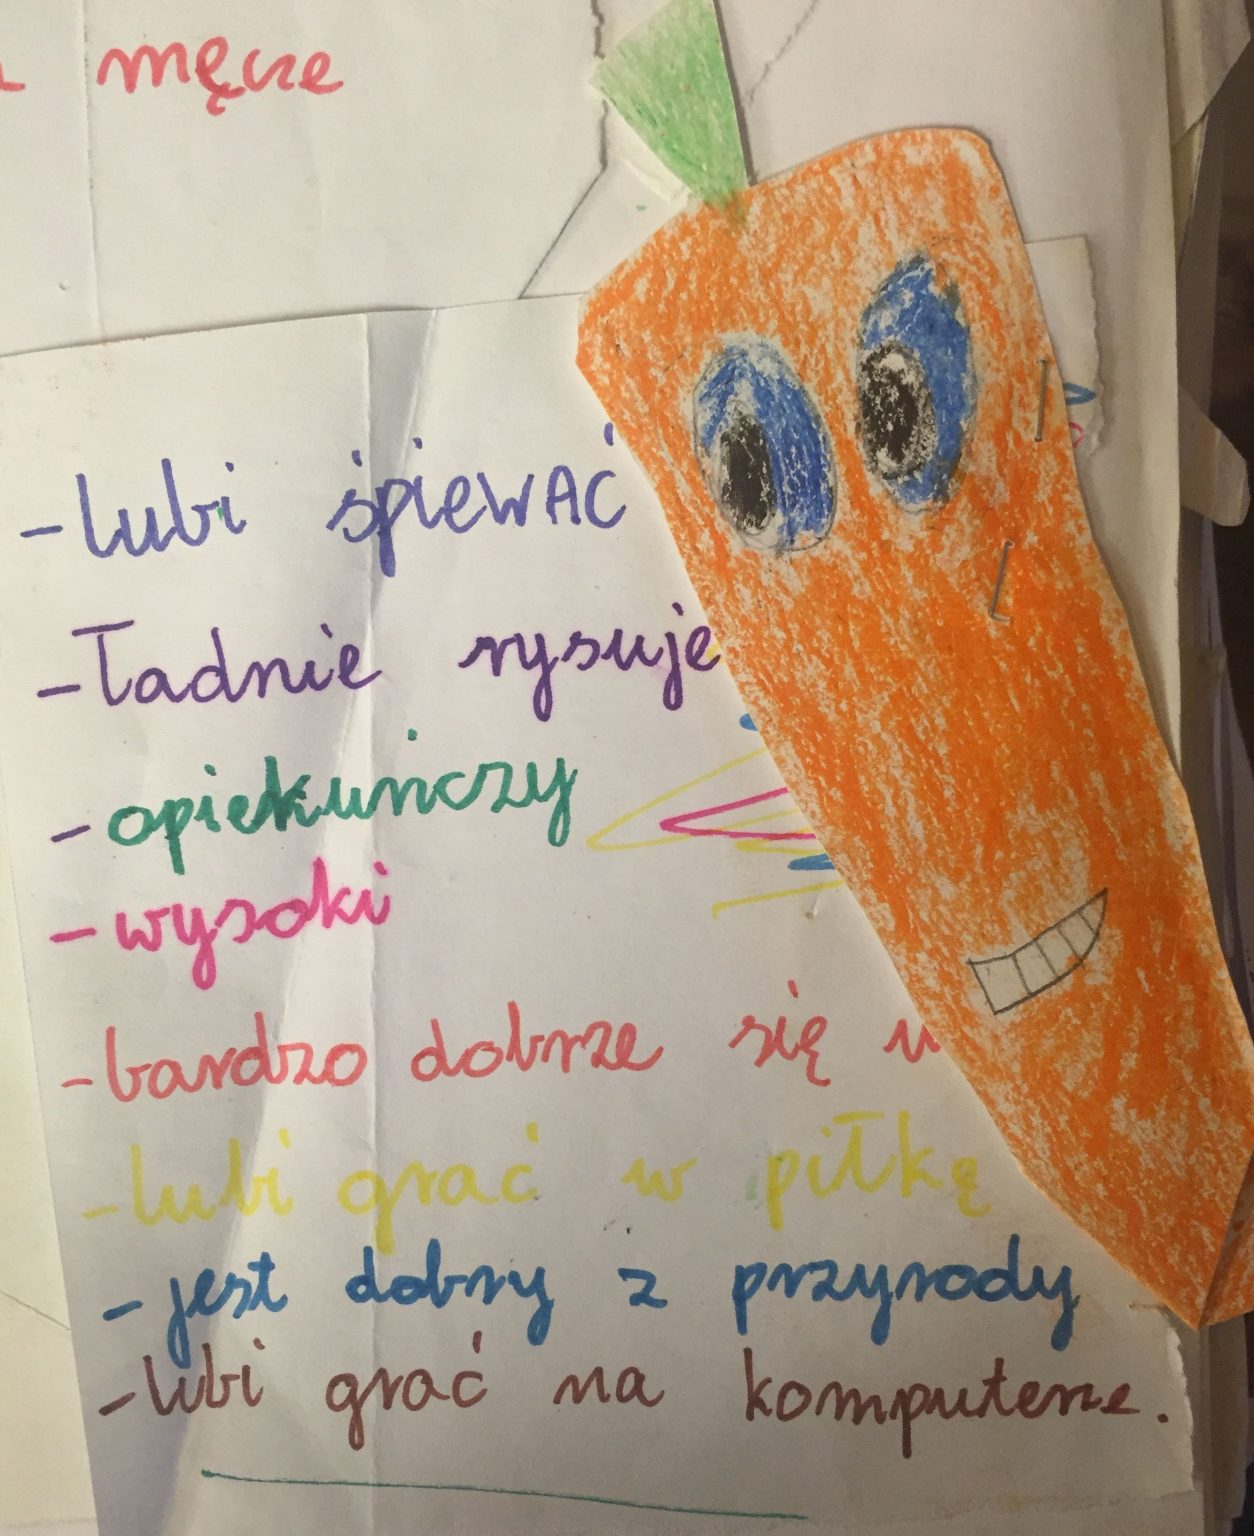 męcze
- lubi śpiewAć
- Ładnie rysuje
- opiekuńczy
- wysoki
- bardzo dobrze się u
- lubi grać w piłkę
- jest dobry z przyrody
- lubi grać na komputerze.